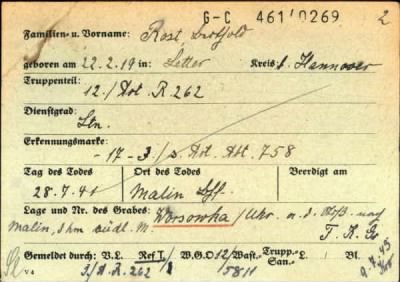 G-C 461/0269 2
Familien- u. Vorname: Rost
geboren am 22.2.19 in: Letter Kreis: b. Hannover
Truppenteil: 12./Art. R 262
Dienstgrad: Ltn.
Erkennungsmarke: -17- 3/s. Art. Abt. 758
Tag des Todes Ort des Todes Beerdigt am
28.7.41 Malin
Lage und Nr. des Grabes: Worsowka / Ukr. a. d. nach
Malin, 3 km südl. M. T. K. Gr
Gemeldet durch: V.L. Ref I. / W.G.O 12/ Wast.- Trupp.- San.- L. Bl.
3/A.R. 262 /8 5811 9.7.43